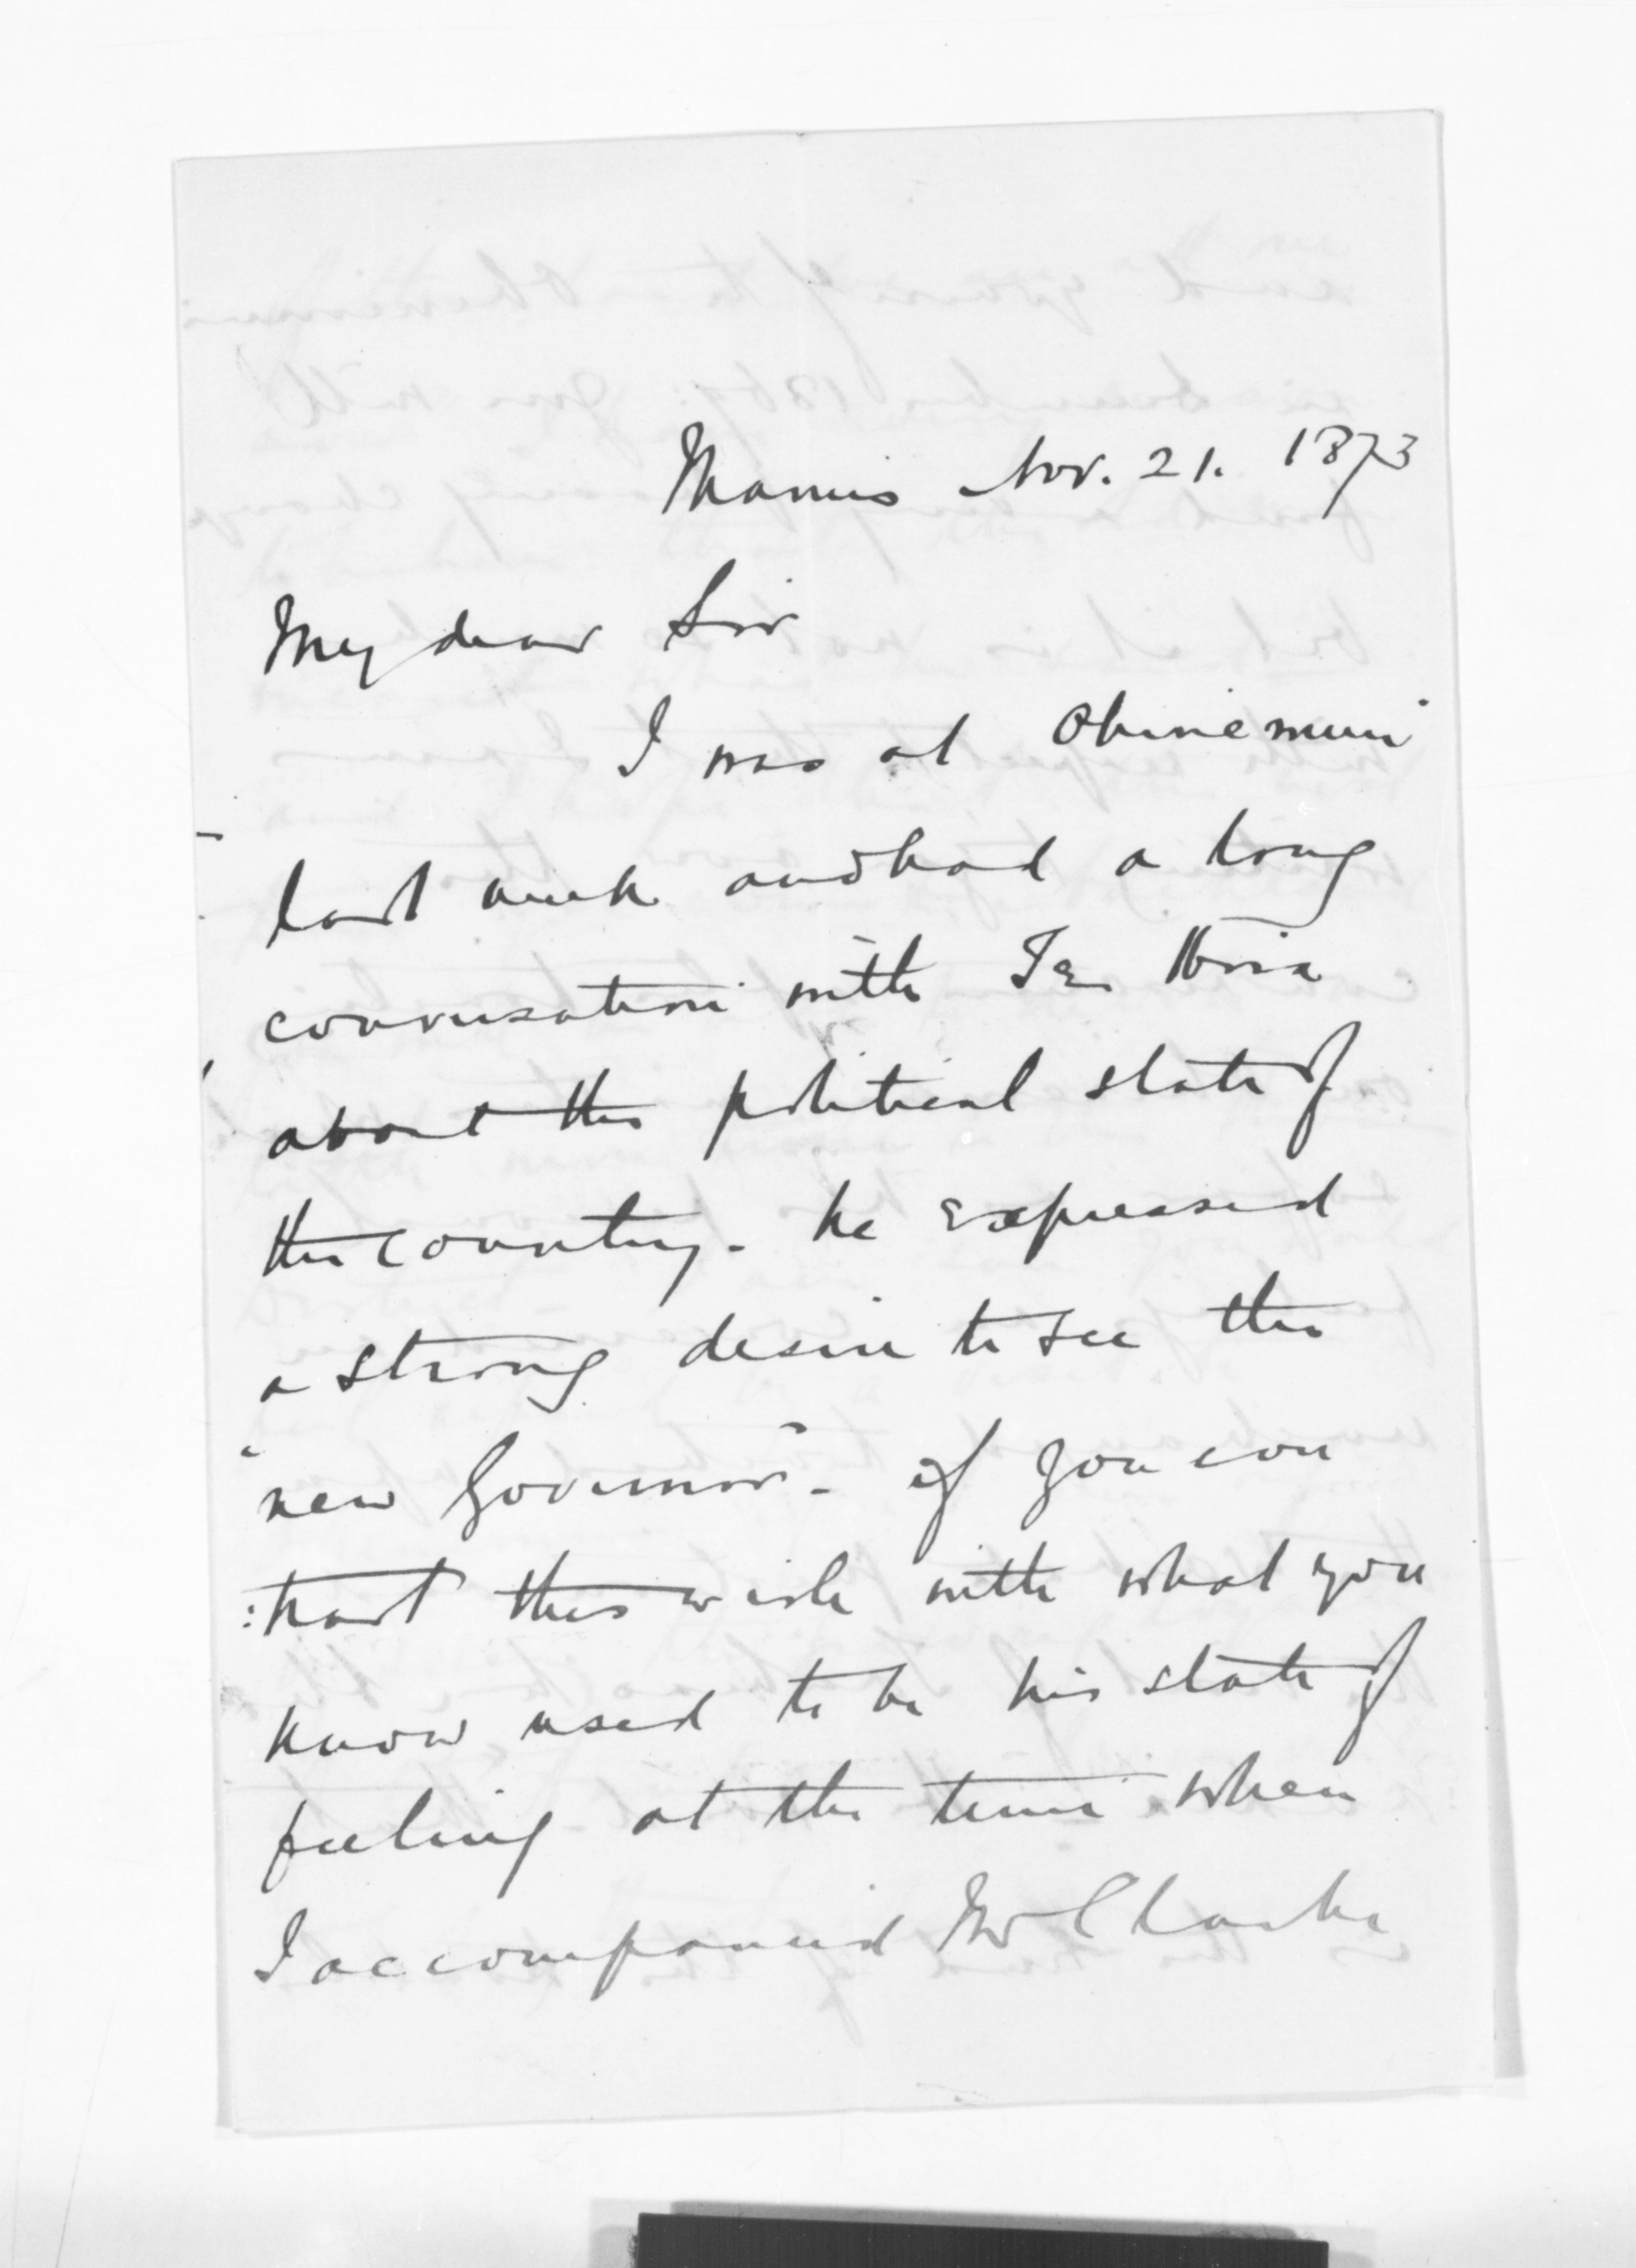 Thames Nov. 21. 1873
My dear Sir
I was at Ohinemuri
last week and had a long
conversation with Te Hira
about the political state of
the country. he expressed
a strong desire to see the
"new Governor". if you con
:trast this wish with what you
know used to be his state of
feeling at the time when
I accompanied Mr Clarke